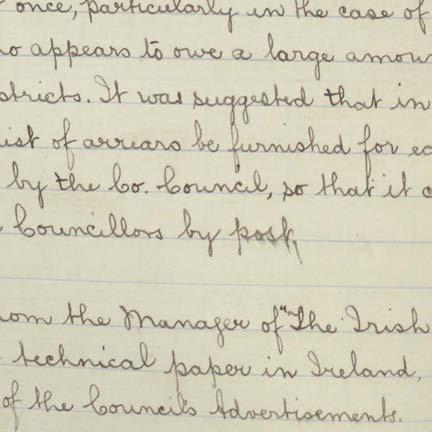 once, particularly in the case of
o appears to owe a large amoun
stricts. It was suggested that in
ist of arriars be furnished for ea
by the Co. Council, so that it c
Councillors by post,
om the Manager of "The Irish
technical paper in Ireland,
of the Council's Advertisements.